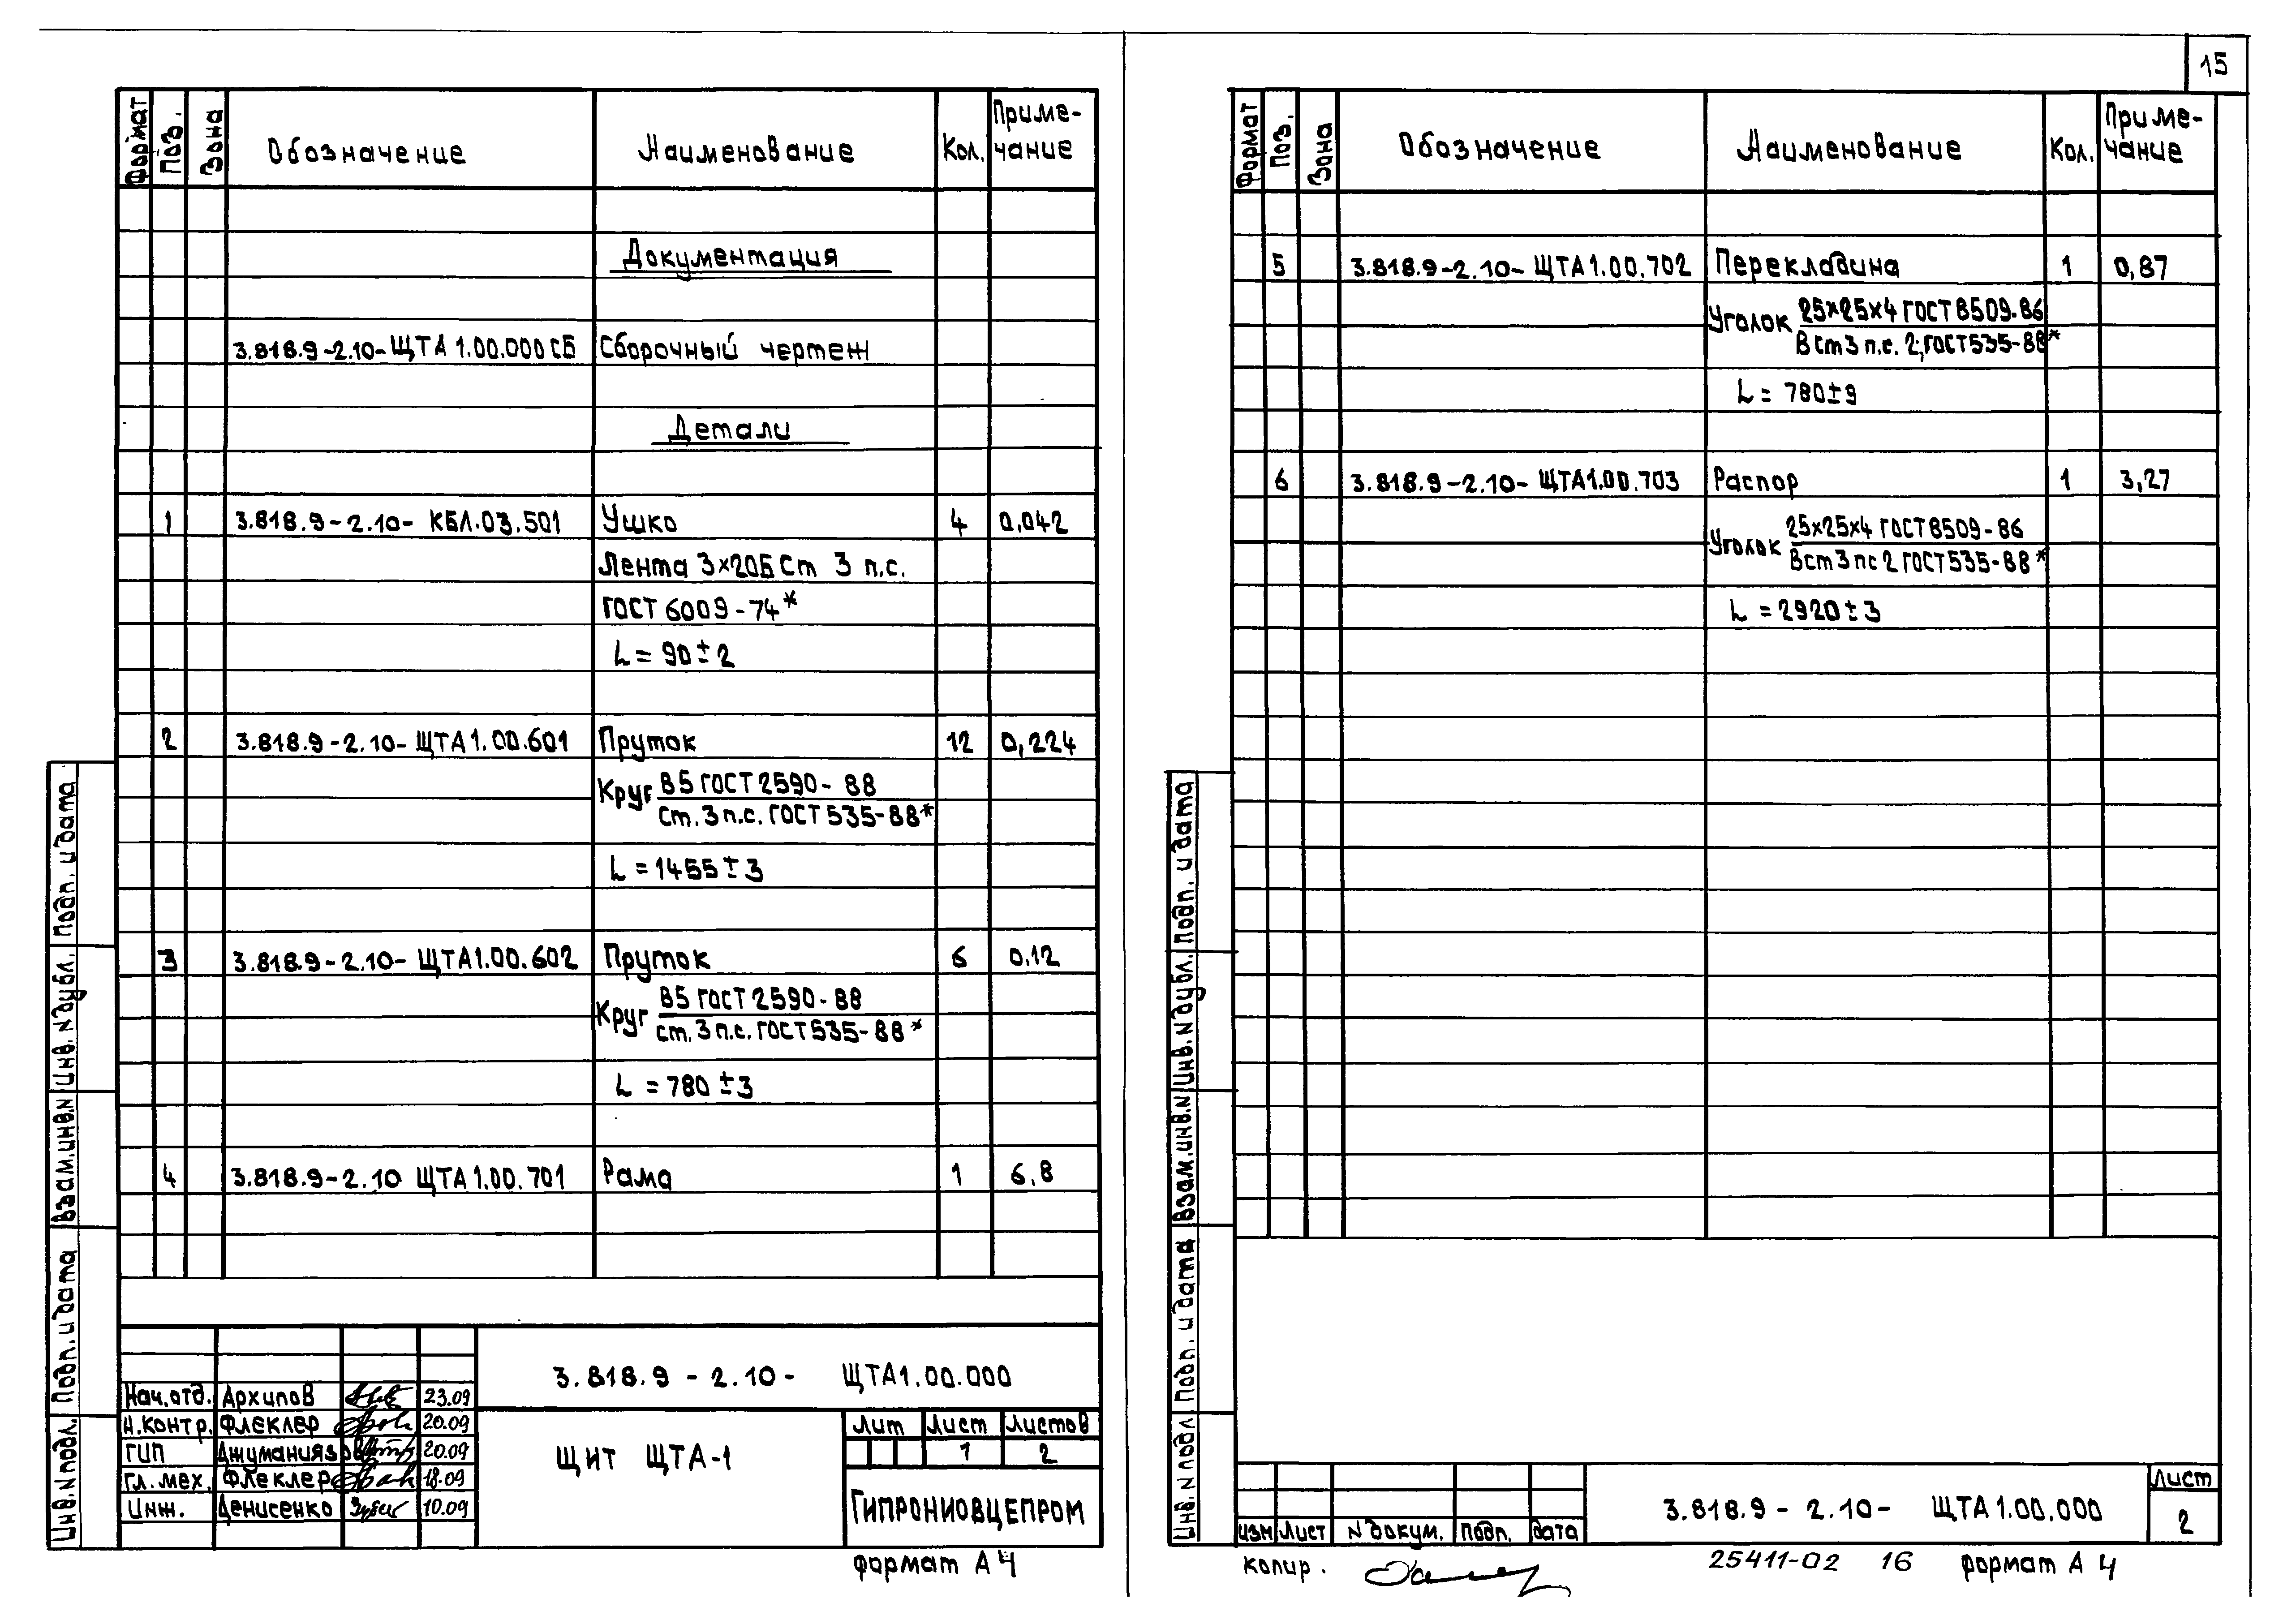 15
Формат Поз. Зона Обозначение Наименование Кол. Приме-чание
Документация
3.818.9-2.10-ЩТА 1.00.000 СБ Сборочный чертеж
Детали
1 3.818.9-2.10- КБЛ.03.501 Ушко 4 0.042
Лента 3×20Б Ст 3 п.с.
ГОСТ 6009-74*
L = 90±2
2 3.818.9-2.10-ЩТА1.00.601 Пруток 12 0,224
Круг В5 ГОСТ 2590-88
Ст. 3 п.с. ГОСТ 535-88*
L = 1455±3
3 3.818.9-2.10-ЩТА1.00.602 Пруток 6 0.12
Круг В5 ГОСТ 2590-88
ст. 3 п.с. ГОСТ 535-88*
L = 780±3
4 3.818.9-2.10 ЩТА1.00.701 Рама 1 6,8
3.818.9-2.10- ЩТА1.00.000
Нач.отд. Архипов 23.09
Н.контр. Флеклер 20.09
ГИП Джуманиязов 20.09
Гл.мех. Флеклер 18.09
Инж. Денисенко 10.09
ЩИТ ЩТА-1
Лит Лист Листов
1 2
ГИПРОНИОВЦЕПРОМ
формат А4
Инв.N подл. Подп. и дата Взам.инв.N Инв.N дубл. Подп. и дата
Формат Поз. Зона Обозначение Наименование Кол. Приме-чание
5 3.818.9-2.10-ЩТА1.00.702 Перекладина 1 0,87
Уголок 25×25×4 ГОСТ 8509-86
В Ст 3 п.с. 2, ГОСТ 535-88*
L = 780±9
6 3.818.9-2.10-ЩТА1.00.703 Распор 1 3,27
Уголок 25×25×4 ГОСТ 8509-86
Вст3пс2 ГОСТ 535-88*
L = 2920±3
Инв.N подл. Подп. и дата Взам.инв.N Инв.N дубл. Подп. и дата
изм Лист N докум. Подп. дата
3.818.9-2.10- ЩТА1.00.000
Лист
2
копир.
25411-02 16 формат А4